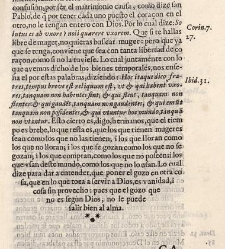 confusion, por ser el matrimonio causa, como dize san
Pablo, de q̃ por tener cada uno puesto el coraçon en el
otro, no le tengan entero con Dios. Por lo cual dize: So-
lutus es ab uxore? noli quærere uxorem. Que si te hallas
libre de muger, no quieras buscar muger: pero que ya
que te tenga, conviene que sea con tanta libertad de co-
raçon, como si no la tuviesse. Lo cual juntamente con lo
que avemos dicho de los bienes temporales, nos ense-
ña el por estas palabras, diziendo: Hoc itaque dico fra-
tres, tempus breve est: reliquum est, ut & qui habent uxo-
res, tanquam non habentes sint, & qui flent, tanquam non
flentes: & qui gaudent, tanquam non gaudentes, & qui
emunt, tanquam non possidentes: & qui utuntur hoc mundo,
tanquam non utantur. Esto cierto es, digo, hermanos, que el tiem-
po es breve, lo que resta es, que los que tienen mugeres
sean como si no las tuviessen; i los que lloran como
los que no lloran; i los que se gozan como los que no se
gozan; i los que compran, como los que no posseen: i los
que usan deste mundo, como los que no lo usan. Lo
cual dize para dar a entender, que poner el gozo en otra co-
sa, que en lo que toca a servir a Dios, es vanidad, i
cosa sin provecho: pues que el gozo que
no es segun Dios, no le puede
salir bien al alma.
Corin. 7.
27.
Ibid. 31.